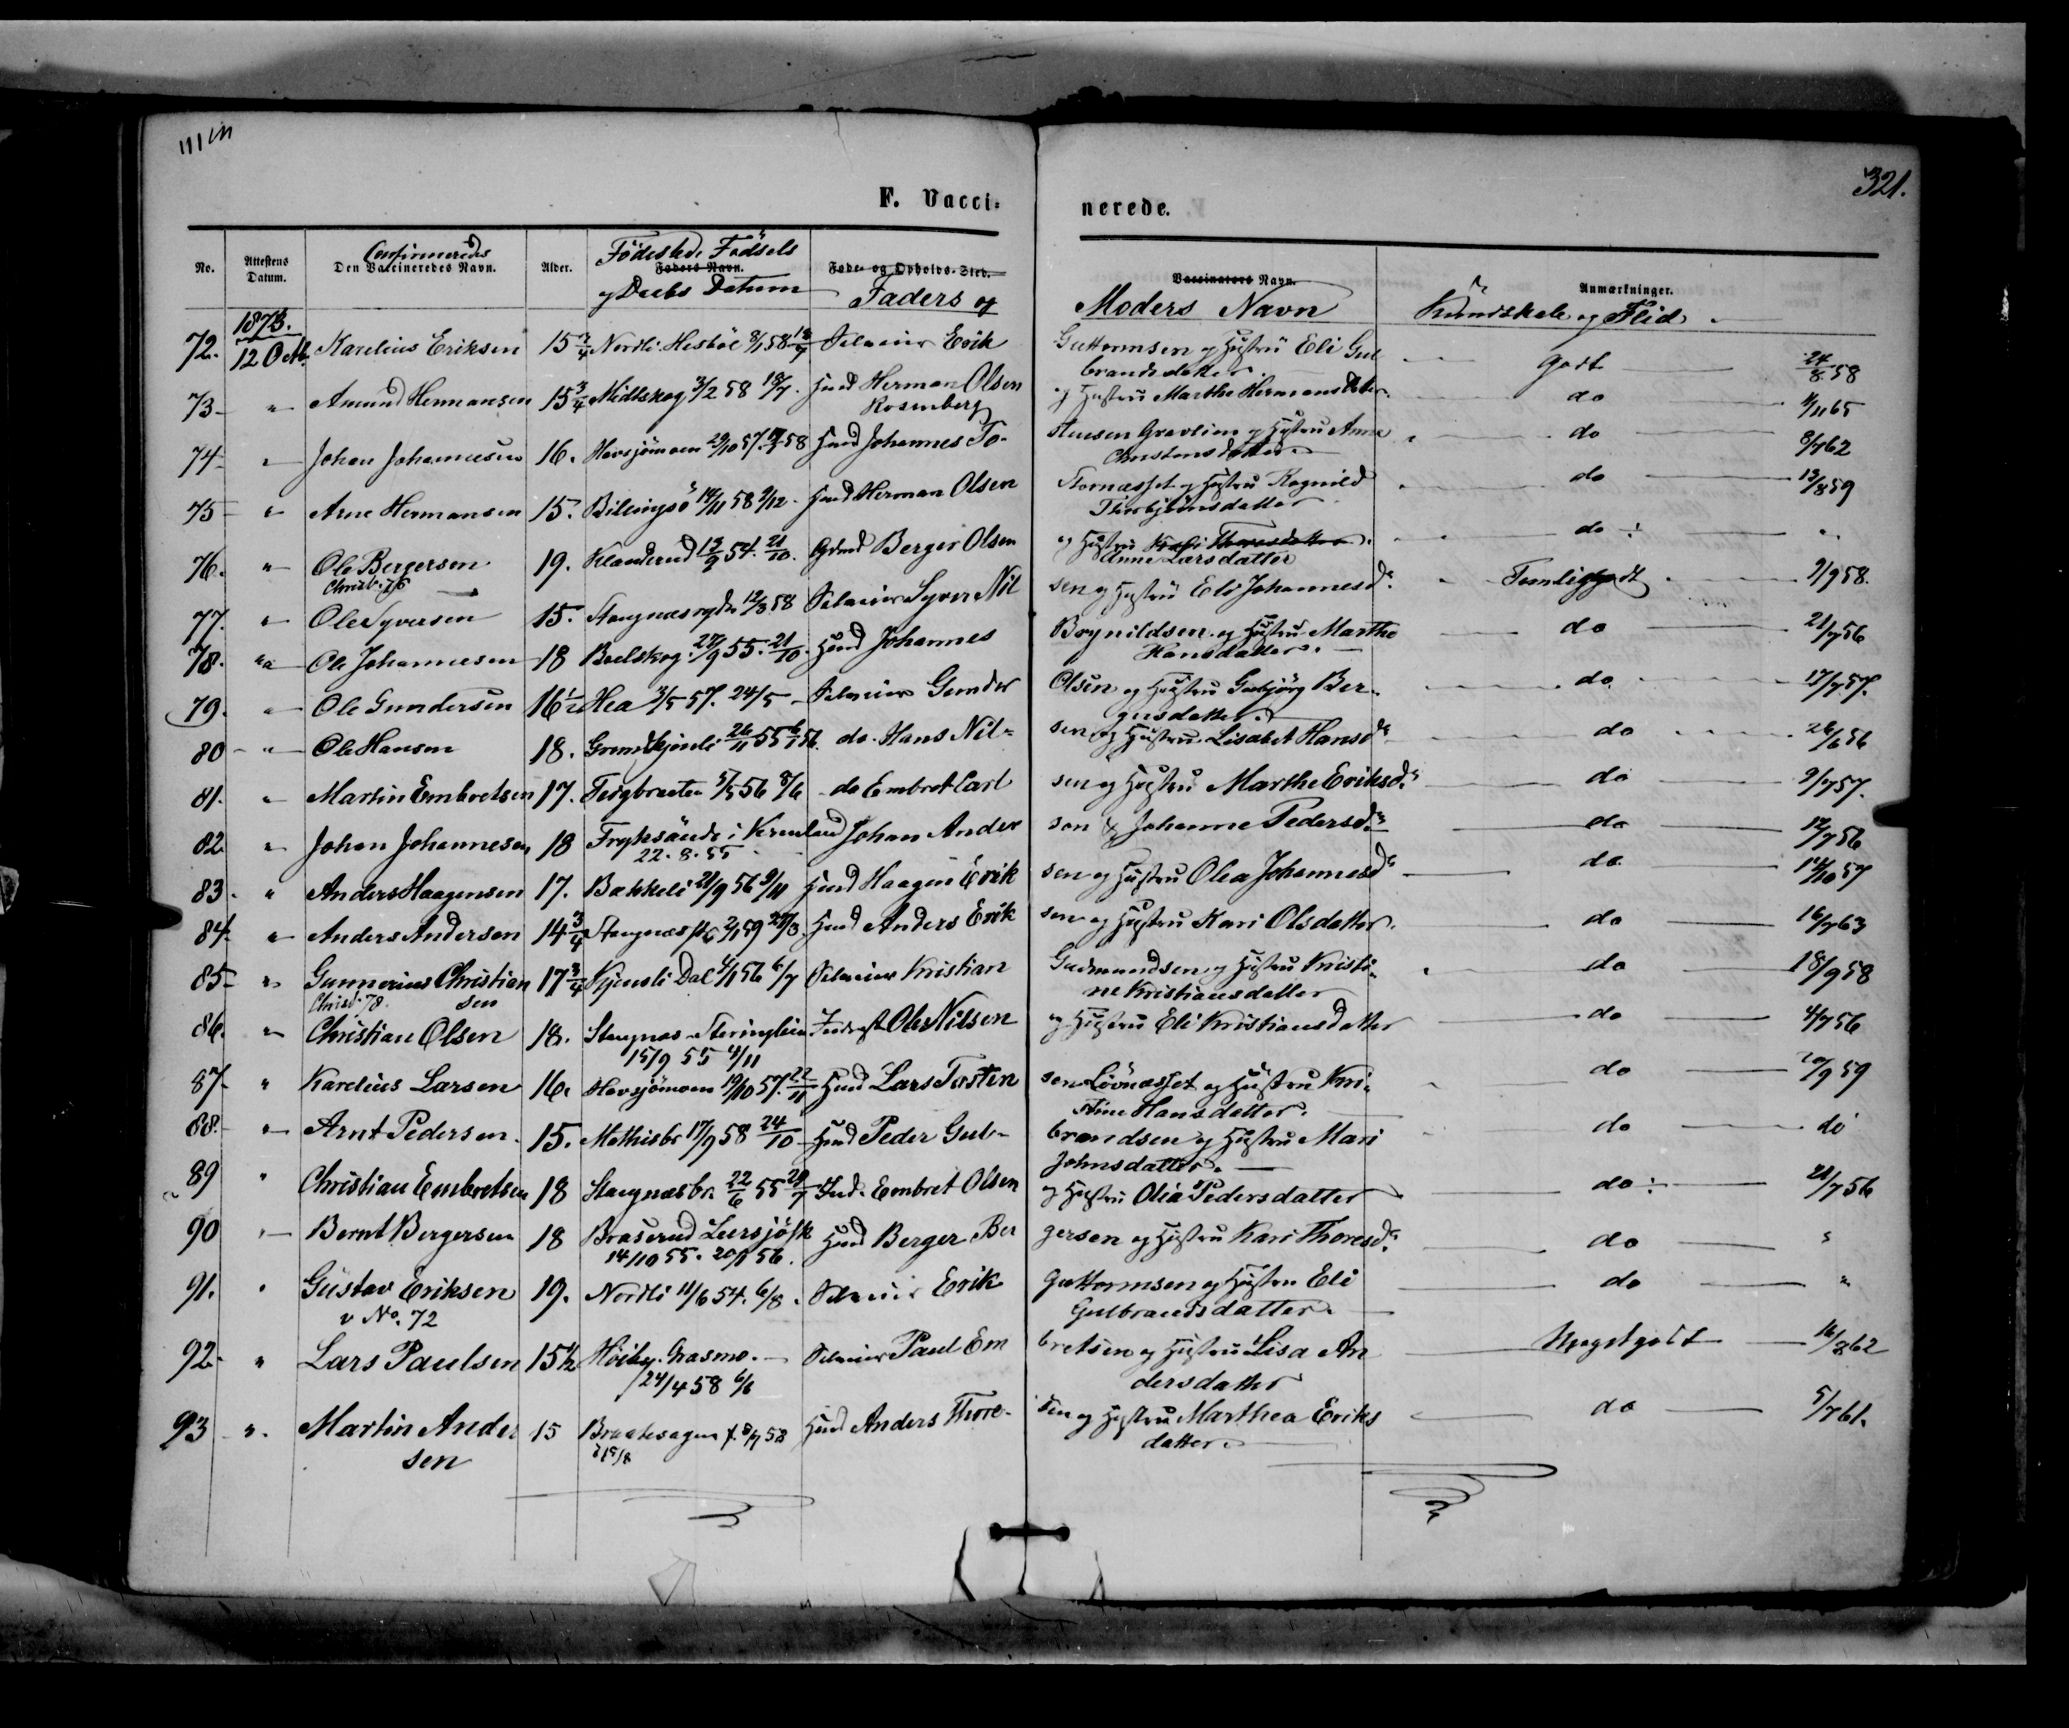 321.
F. Vacci-
nerede.
No.
Attestens Datum.
Confirmeredes
Den Vaccineredes Navn.
Alder.
Födested, Fødsels
Faders Navn.
og Daabs Datum
Føde- og Opholds-Sted.
Faders og
Vaccinators Navn.
Moders Navn
Anmærkninger.
Kundskab og Flid.
1873.
72. 12 Octb. Karelius Eriksen 15 3/4 Nordli 8/1 58 Selveier Erik Guttormsen og Hustru Eli Gul godt 24/8 58
brandsdatter.
73 " Amund Hermansen 15 3/4 Midtskog 3/2 58 18/7. Husmd Herman Olsen og Hustru Marthe Hermansdatter. do 4/11 65
Rosenberg
74 " Johan Johannesen 16. Havsjömoen 29/10 57. 58 Husmd Johannes To- stensen Gravlien og Hustru Anne do 8/7 62
Christensdatter
75 " Arne Hermansen 15. Billingsö 14/11 58 9/12. Husmd Herman Olsen Stornæsset og Hustru Ragnild do 13/8 59
Thorbjörnsdatter
76. " Ole Bergersen 19. 13/9 54. 21/10. Gdmd Berger Olsen og Hustru Kari Thoresdatter. do ÷ "
Anne Larsdatter
77. " Ole Syversen 15. Stangnæs 12/3 58 Selveier Syver Nil sen og Hustru Eli Johannesdr. Temlig godt 9/9 58.
78. " Ole Johannesen 18 Bælskog 28/9 55. 21/10. Husmd Johannes Boynildsen og Hustru Marthe do 21/7 56
Hansdatter.
79. " Ole Gundersen 16 1/2 Hea 3/5 57. 24/5 Selveier Gunder Olsen og Hustru Ber- do. 17/7 57.
gersdatter
80 " Ole Hansen 18. 26/11 55 6/1 56. do. Hans Nil- sen og Hustru Lisabet Hansdr. do 26/6 56
81. " Martin Embretsen 17. 5/5 56 8/6 do Embret Carl sen og Hustru Marthe Eriksdr. do 9/7 57.
82 " Johan Johannesen 18 Fryksände i Vermland Johan Ander son & Johanne Pedersdr. do 12/7 56
22. 8. 55
83. " Anders Haagensen 17. Bakkeli 21/9 56 9/11 Husmd Haagen Erik sen og Hustru Olea Johannesdr. do. 14/10 57
84. " Anders Andersen 14 3/4 Stangnæs 2/1 59 27/3. Husmd Anders Erik sen og Hustru Kari Olsdatter. do 16/7 63
85 " Gunnerius Christian 17 3/4 Dal 4/1 56 6/7 Selveier Kristian Gudmundsen og Hustru Kristi- do 18/9 58
sen ne Kristiansdatter
86. " Christian Olsen 18. Stangnæs Inderst Ole Nilsen og Hustru Eli Kristiansdatter do 4/7 56
15/9 55 4/11
87 " Karelius Larsen 16. Havsjömoen 19/10 57. 22/11 Husmd Lars Tosten sen Lövnæsset og Hustru Kri- do 20/9 59
stine Hansdatter.
88. " Arnt Pedersen. 15. Mathisbr 17/9 58 24/10 Husmd Peder Gul- brandsen og Hustru Mari do do
Johnsdatter.
89 " Christian Embretsen 18 Stangnæsbr. 22/6 55 29/7 Ind. Embret Olsen og Hustru Olia Pedersdatter do ÷ 21/7 56
90 " Bernt Bergersen 18 Braserud Leersjösk Husmd Berger Ber gersen og Hustru Kari Thoresdr. do "
14/10 55. 20/1 56.
91. " Gustav Eriksen 19. Nordli 11/6 54. 6/8. Selveier Erik Guttormsen og Hustru Eli do "
v No. 72 Gulbrandsdatter.
92. " Lars Paulsen 15 1/2 Höiby. Selveier Paul Em bretsen og Hustru Lisa An Meget godt 16/8 62
24/4 58 6/6 dersdatter
93 ". Martin Ander 15 Braatesagen f. 5/7 58 Husmd Anders Thore- sen og Hustru Marthea Eriks do 5/7 61.
sen datter.